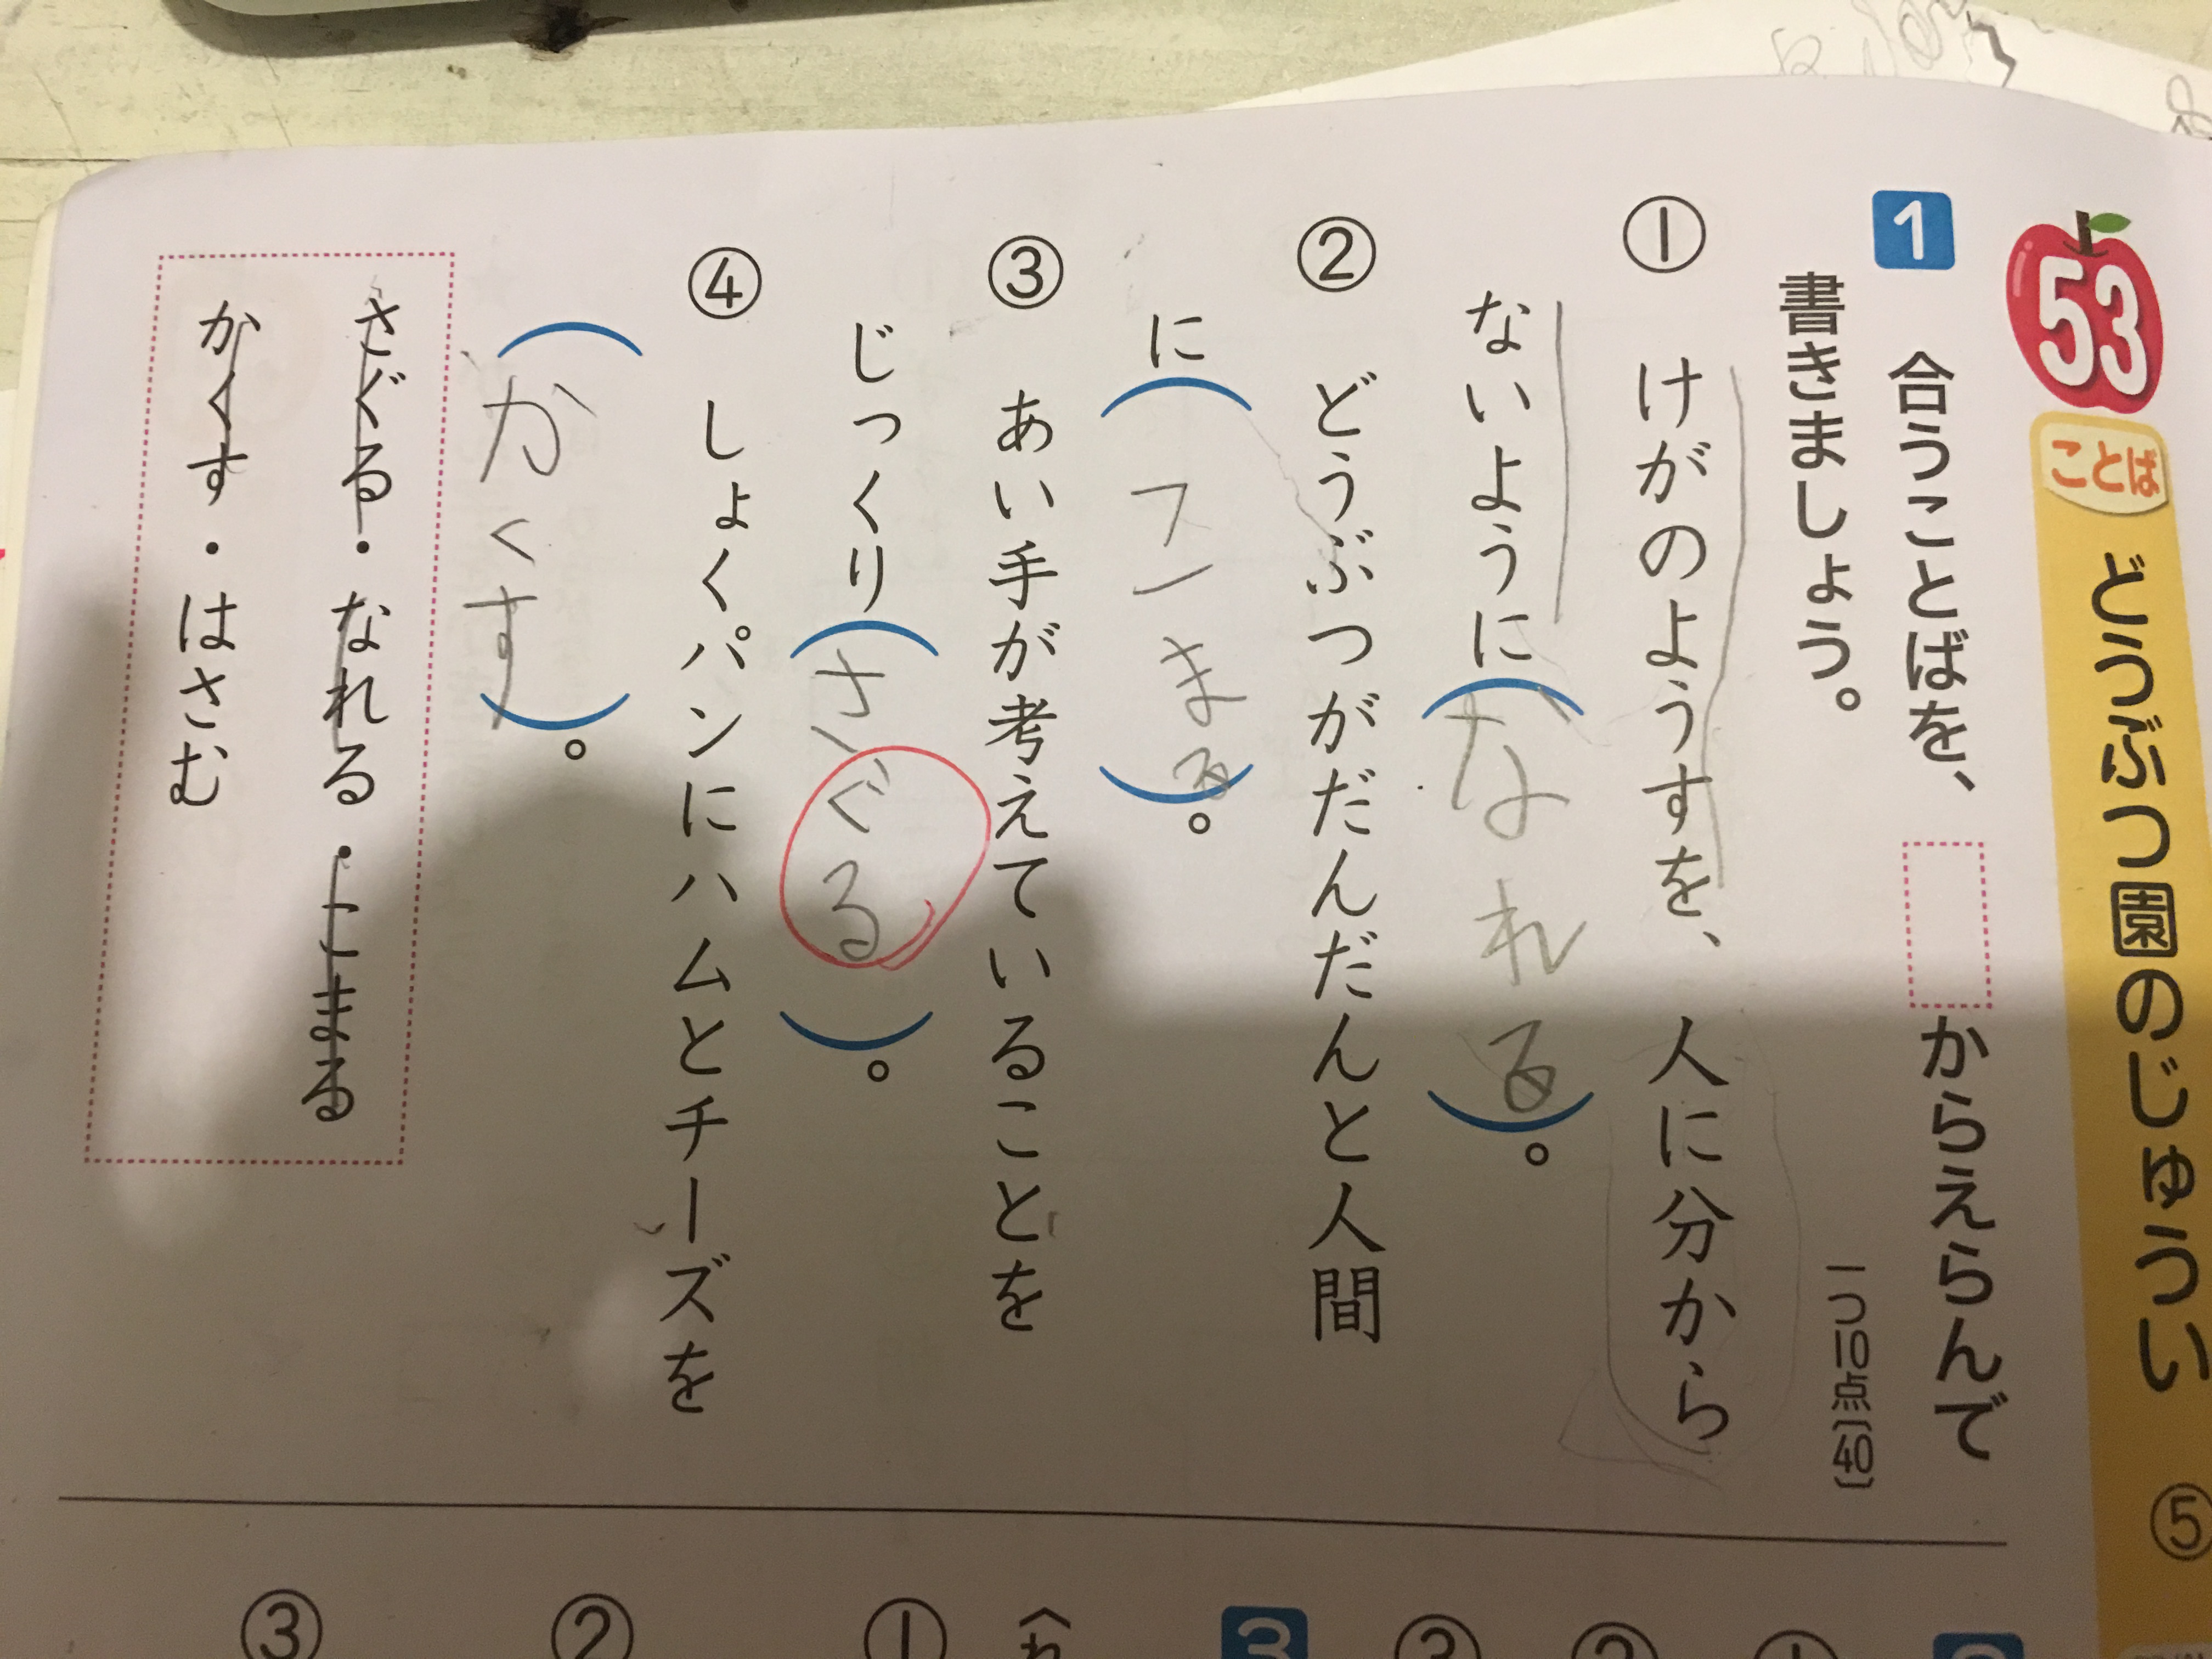 53 ことば どうぶつ園のじゅうい ⑤
1 合うことばを、 からえらんで
書きましょう。
一つ10点〔40〕
① けがのようすを、人に分から
ないように(なれる)。
② どうぶつがだんだんと人間
に(こまる)。
③ あい手が考えていることを
じっくり(さぐる)。
④ しょくパンにハムとチーズを
(かくす)。
さぐる・なれる・こまる
かくす・はさむ
3
①
②
③